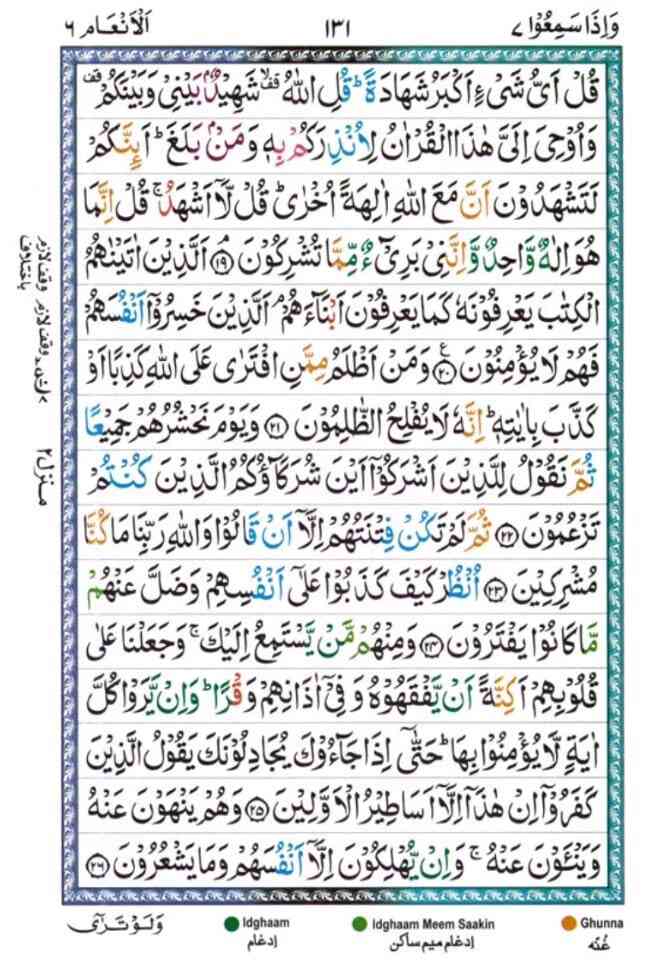 وَاِذَا سَمِعُوْا ٧
١٣١
اَلْاَنْعَام ٦
قُلْ اَيُّ شَيْءٍ اَكْبَرُ شَهَادَةً ؕ قُلِ اللّٰهُ ۙ۫ شَهِيْدٌۢ بَيْنِيْ وَبَيْنَكُمْ ۫
وَاُوْحِيَ اِلَيَّ هٰذَا الْقُرْاٰنُ لِاُنْذِرَكُمْ بِهٖ وَمَنْۢ بَلَغَ ؕ اَئِنَّكُمْ
لَتَشْهَدُوْنَ اَنَّ مَعَ اللّٰهِ اٰلِهَةً اُخْرٰى ؕ قُلْ لَّاۤ اَشْهَدُ ۚ قُلْ اِنَّمَا
هُوَ اِلٰهٌ وَّاحِدٌ وَّاِنَّنِيْ بَرِيْٓءٌ مِّمَّا تُشْرِكُوْنَ ۘ ١٩ اَلَّذِيْنَ اٰتَيْنٰهُمُ
الْكِتٰبَ يَعْرِفُوْنَهٗ كَمَا يَعْرِفُوْنَ اَبْنَآءَهُمْ ۘ اَلَّذِيْنَ خَسِرُوْۤا اَنْفُسَهُمْ
فَهُمْ لَا يُؤْمِنُوْنَ ٢٠ ع وَمَنْ اَظْلَمُ مِمَّنِ افْتَرٰى عَلَى اللّٰهِ كَذِبًا اَوْ
كَذَّبَ بِاٰيٰتِهٖ ؕ اِنَّهٗ لَا يُفْلِحُ الظّٰلِمُوْنَ ٢١ وَيَوْمَ نَحْشُرُهُمْ جَمِيْعًا
ثُمَّ نَقُوْلُ لِلَّذِيْنَ اَشْرَكُوْۤا اَيْنَ شُرَكَآؤُكُمُ الَّذِيْنَ كُنْتُمْ
تَزْعُمُوْنَ ٢٢ ثُمَّ لَمْ تَكُنْ فِتْنَتُهُمْ اِلَّاۤ اَنْ قَالُوْا وَاللّٰهِ رَبِّنَا مَا كُنَّا
مُشْرِكِيْنَ ٢٣ اُنْظُرْ كَيْفَ كَذَبُوْا عَلٰۤى اَنْفُسِهِمْ وَضَلَّ عَنْهُمْ
مَّا كَانُوْا يَفْتَرُوْنَ ٢٤ وَمِنْهُمْ مَّنْ يَّسْتَمِعُ اِلَيْكَ ۚ وَجَعَلْنَا عَلٰى
قُلُوْبِهِمْ اَكِنَّةً اَنْ يَّفْقَهُوْهُ وَفِيْۤ اٰذَانِهِمْ وَقْرًا ؕ وَاِنْ يَّرَوْا كُلَّ
اٰيَةٍ لَّا يُؤْمِنُوْا بِهَا ؕ حَتّٰۤى اِذَا جَآءُوْكَ يُجَادِلُوْنَكَ يَقُوْلُ الَّذِيْنَ
كَفَرُوْۤا اِنْ هٰذَاۤ اِلَّاۤ اَسَاطِيْرُ الْاَوَّلِيْنَ ٢٥ وَهُمْ يَنْهَوْنَ عَنْهُ
وَيَنْـَٔوْنَ عَنْهُ ۚ وَاِنْ يُّهْلِكُوْنَ اِلَّاۤ اَنْفُسَهُمْ وَمَا يَشْعُرُوْنَ ٢٦
وقف لازم وقف لازم
باختلاف
منزل ٢
وَلَوْ تَرٰۤى
Idghaam
إدغام
Idghaam Meem Saakin
إدغام ميم ساكن
Ghunna
غُنّه